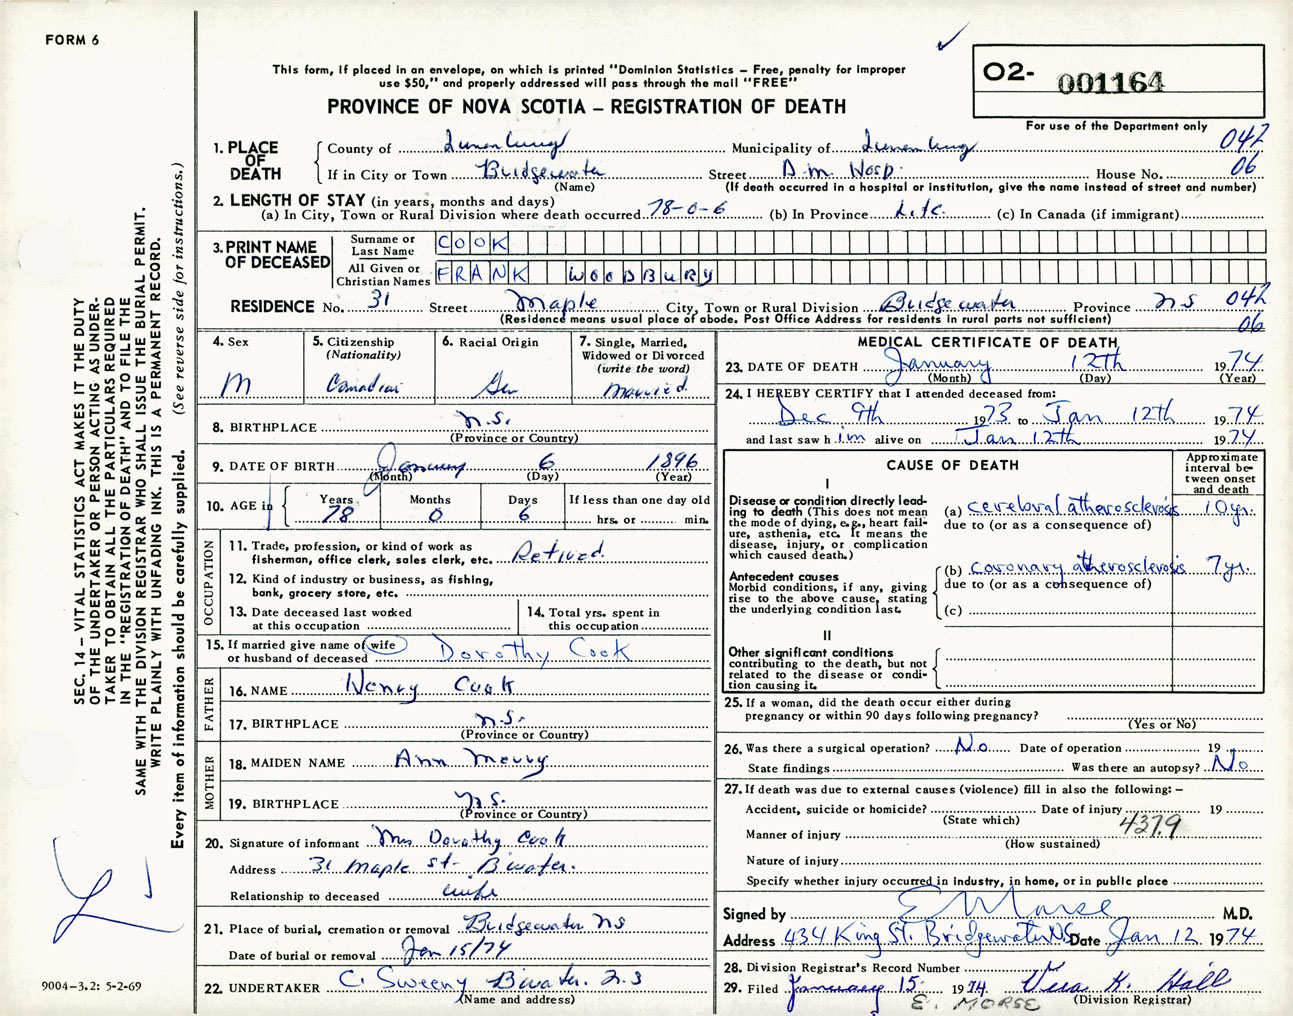 FORM 6
This form, if placed in an envelope, on which is printed "Dominion Statistics – Free, penalty for improper
use $50," and properly addressed will pass through the mail "FREE"
PROVINCE OF NOVA SCOTIA – REGISTRATION OF DEATH
02- 001164
For use of the Department only
042
06
SEC. 14 – VITAL STATISTICS ACT MAKES IT THE DUTY
OF THE UNDERTAKER OR PERSON ACTING AS UNDER-
TAKER TO OBTAIN ALL THE PARTICULARS REQUIRED
IN THE "REGISTRATION OF DEATH" AND TO FILE THE
SAME WITH THE DIVISION REGISTRAR WHO SHALL ISSUE THE BURIAL PERMIT.
WRITE PLAINLY WITH UNFADING INK. THIS IS A PERMANENT RECORD.
Every item of information should be carefully supplied. (See reverse side for instructions.)
1. PLACE OF DEATH
County of Lunenburg Municipality of Lunenburg
If in City or Town Bridgewater Street D.M. Hosp. House No.
(Name) (If death occurred in a hospital or institution, give the name instead of street and number)
2. LENGTH OF STAY (in years, months and days)
(a) In City, Town or Rural Division where death occurred 78-0-6 (b) In Province Life (c) In Canada (if immigrant)
3. PRINT NAME OF DECEASED
Surname or Last Name COOK
All Given or Christian Names FRANK WOODBURY
RESIDENCE No. 31 Street Maple City, Town or Rural Division Bridgewater Province N.S 042
(Residence means usual place of abode. Post Office Address for residents in rural parts not sufficient) 06
4. Sex M
5. Citizenship (Nationality) Canadian
6. Racial Origin Ger
7. Single, Married, Widowed or Divorced (write the word) Married
8. BIRTHPLACE N.S.
(Province or Country)
9. DATE OF BIRTH January 6 1896
(Month) (Day) (Year)
10. AGE in Years 78 Months 0 Days 6 If less than one day old hrs. or min.
OCCUPATION
11. Trade, profession, or kind of work as
fisherman, office clerk, sales clerk, etc. Retired.
12. Kind of industry or business, as fishing,
bank, grocery store, etc.
13. Date deceased last worked
at this occupation
14. Total yrs. spent in
this occupation
15. If married give name of wife
or husband of deceased Dorothy Cook
FATHER
16. NAME Henry Cook
17. BIRTHPLACE N.S.
(Province or Country)
MOTHER
18. MAIDEN NAME Ann Merry
19. BIRTHPLACE N.S.
(Province or Country)
20. Signature of informant Mrs Dorothy Cook
Address 31 Maple St- B'water.
Relationship to deceased wife
21. Place of burial, cremation or removal Bridgewater NS
Date of burial or removal Jan 15/74
22. UNDERTAKER C. Sweeny B'water. N.S
(Name and address)
9004-3.2: 5-2-69
MEDICAL CERTIFICATE OF DEATH
23. DATE OF DEATH January 12th 1974
(Month) (Day) (Year)
24. I HEREBY CERTIFY that I attended deceased from:
Dec 9th 1973 to Jan 12th 1974
and last saw him alive on Jan 12th 1974
CAUSE OF DEATH
Approximate interval be-
tween onset
and death
I
Disease or condition directly lead-
ing to death (This does not mean
the mode of dying, e.g., heart fail-
ure, asthenia, etc. It means the
disease, injury, or complication
which caused death.)
(a) cerebral atherosclerosis 10 yr.
due to (or as a consequence of)
Antecedent causes
Morbid conditions, if any, giving
rise to the above cause, stating
the underlying condition last.
(b) coronary atherosclerosis 7 yr.
due to (or as a consequence of)
(c)
II
Other significant conditions
contributing to the death, but not
related to the disease or condi-
tion causing it.
25. If a woman, did the death occur either during
pregnancy or within 90 days following pregnancy?
(Yes or No)
26. Was there a surgical operation? No Date of operation 19
State findings Was there an autopsy? No
27. If death was due to external causes (violence) fill in also the following: –
Accident, suicide or homicide? Date of injury 19
(State which) 4379
Manner of injury
(How sustained)
Nature of injury
Specify whether injury occurred in industry, in home, or in public place
Signed by E Morse M.D.
Address 434 King St. Bridgewater NS Date Jan 12 1974
28. Division Registrar's Record Number
29. Filed January 15 1974 Vera K. Hall
E. MORSE (Division Registrar)